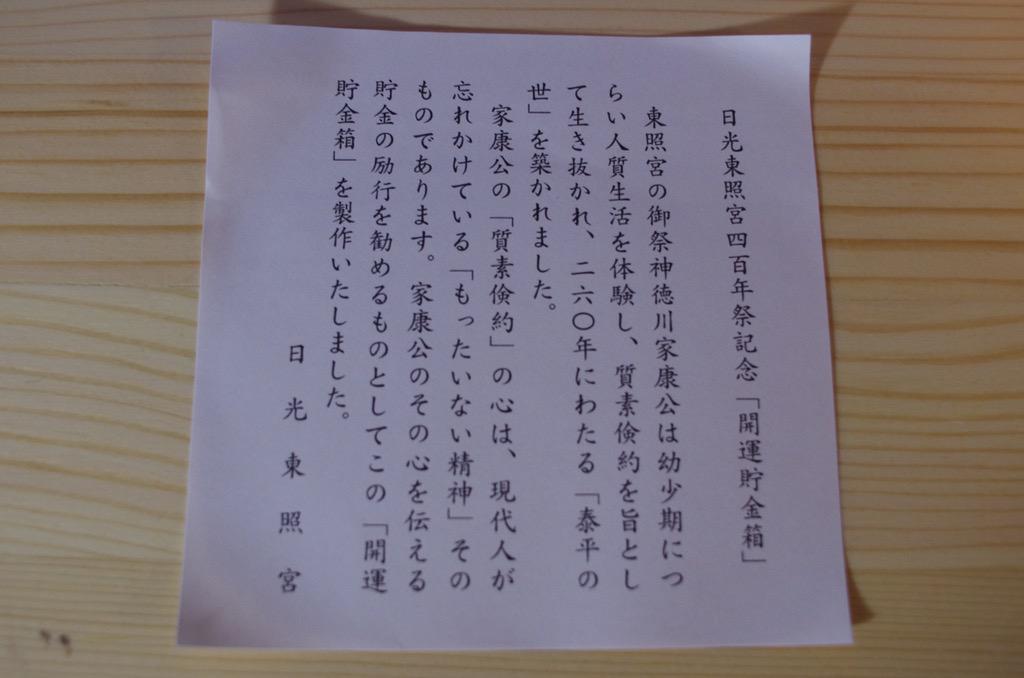 日光東照宮四百年祭記念「開運貯金箱」
東照宮の御祭神徳川家康公は幼少期につ
らい人質生活を体験し、質素倹約を旨とし
て生き抜かれ、二六〇年にわたる「泰平の
世」を築かれました。
家康公の「質素倹約」の心は、現代人が
忘れかけている「もったいない精神」その
ものであります。家康公のその心を伝える
貯金の励行を勧めるものとしてこの「開運
貯金箱」を製作いたしました。
日光東照宮